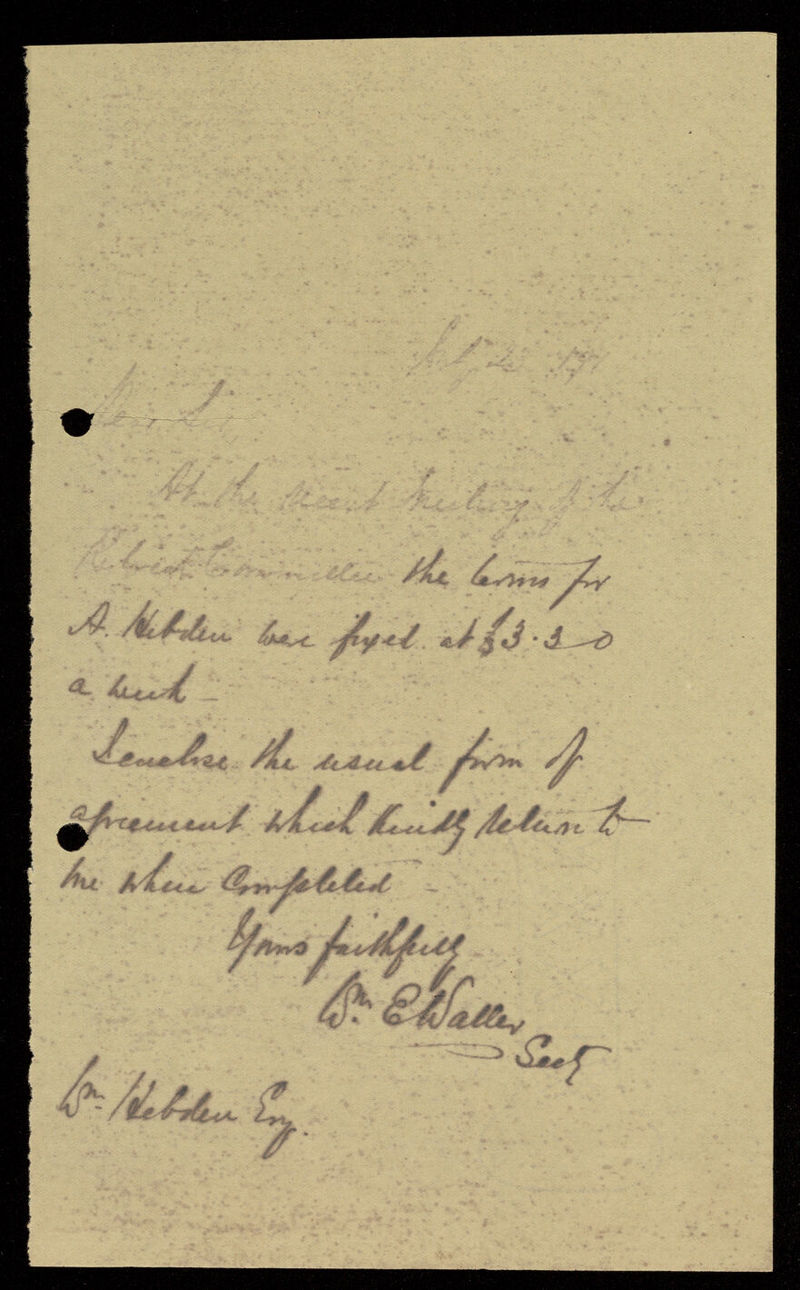 Dear Sir,
At the recent Meeting of the
Retreat Committee the terms for
A. Hebden were fixed at £3.3.0
a week –
I enclose the usual form of
agreement which kindly return to
me when completed –
Yours faithfully
Wm. E Waller
Secty
Wm. Hebden Esq.